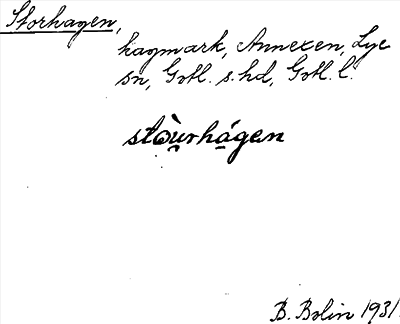 Storhagen,
hagmark, Annexen, Lye
sn, Gotl. s. hd, Gotl. l.
stòu̯rhá̱gen
B. Bolin 1931.